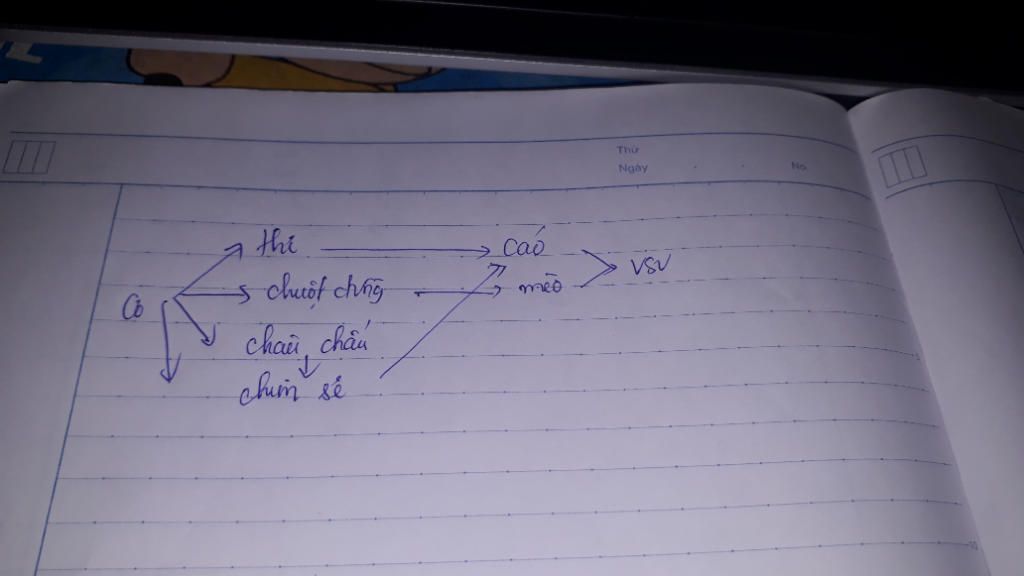 Thứ
Ngày No
thỏ cáo
VSV
chuột đồng mèo
Cỏ
châu chấu
chim sẻ